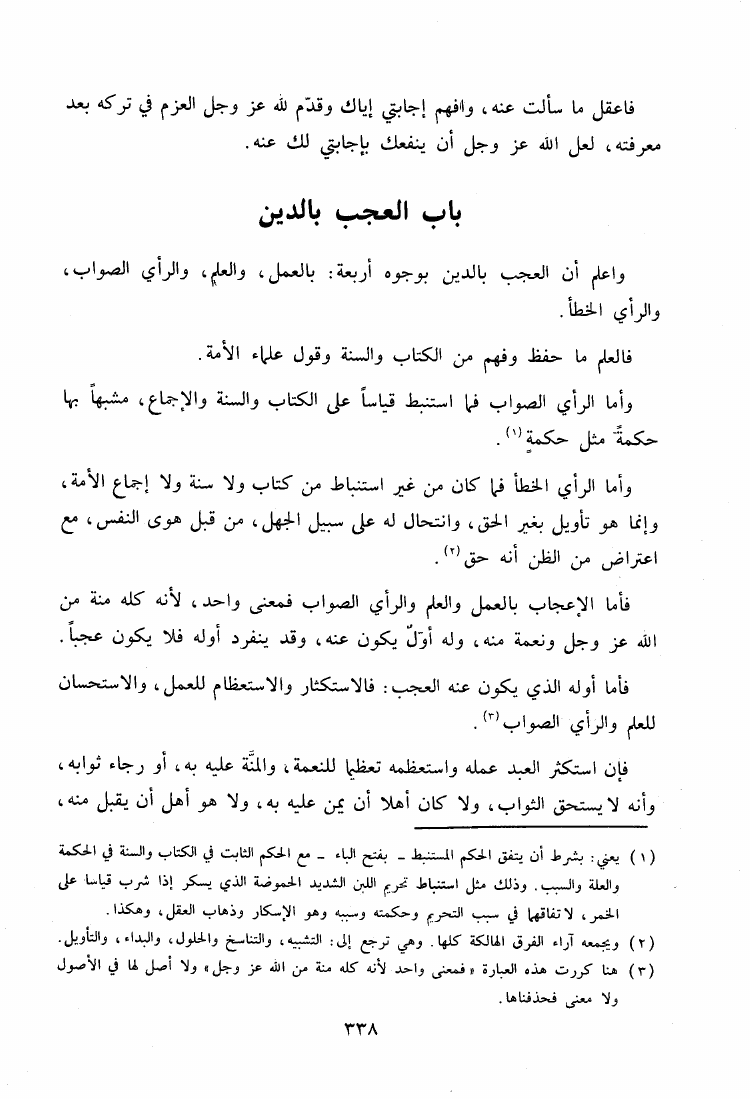 فاعقل ما سألت عنه، وافهم إجابتي إياك وقدّم لله عز وجل العزم في تركه بعد
معرفته، لعل الله عز وجل أن ينفعك بإجابتي لك عنه.
باب العجب بالدين
واعلم أن العجب بالدين بوجوه أربعة: بالعمل، والعلم، والرأي الصواب،
والرأي الخطأ.
فالعلم ما حفظ وفهم من الكتاب والسنة وقول علماء الأمة.
وأما الرأي الصواب فما استنبط قياساً على الكتاب والسنة والإجماع، مشبهاً بها
حكمةً مثل حكمةٍ (١).
وأما الرأي الخطأ فما كان من غير استنباط من كتاب ولا سنة ولا إجماع الأمة،
وإنما هو تأويل بغير الحق، وانتحال له على سبيل الجهل، من قبل هوى النفس، مع
اعتراض من الظن أنه حق (٢).
فأما الإعجاب بالعمل والعلم والرأي الصواب فمعنى واحد، لأنه كله منة من
الله عز وجل ونعمة منه، وله أولٌ يكون عنه، وقد ينفرد أوله فلا يكون عجباً.
فأما أوله الذي يكون عنه العجب: فالاستكثار والاستعظام للعمل، والاستحسان
للعلم والرأي الصواب (٣).
فإن استكثر العبد عمله واستعظمه تعظيما للنعمة، والمنَّة عليه به، أو رجاء ثوابه،
وأنه لا يستحق الثواب، ولا كان أهلا أن يمن عليه به، ولا هو أهل أن يقبل منه،
(١) يعني: بشرط أن يتفق الحكم المستنبط - بفتح الباء - مع الحكم الثابت في الكتاب والسنة في الحكمة
والعلة والسبب. وذلك مثل استنباط تحريم اللبن الشديد الحموضة الذي يسكر إذا شرب قياسا على
الخمر، لاتفاقهما في سبب التحريم وحكمته وسببه وهو الإسكار وذهاب العقل، وهكذا.
(٢) ويجمعه آراء الفرق الهالكة كلها. وهي ترجع إلى: التشبيه، والتناسخ والحلول، والبداء، والتأويل.
(٣) هنا كررت هذه العبارة «فمعنى واحد لأنه كله منة من الله عز وجل» ولا أصل لها في الأصول
ولا معنى فحذفناها.
٣٣٨